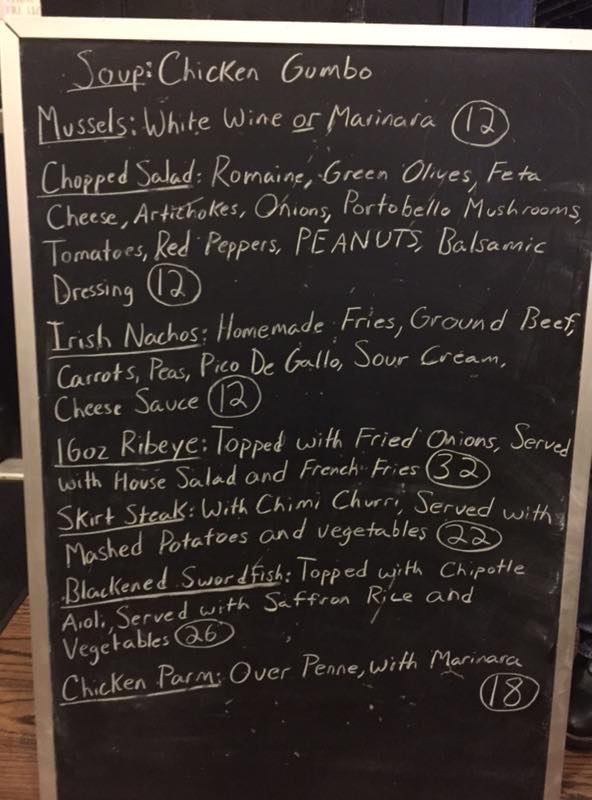 Soup: Chicken Gumbo
Mussels: White Wine or Marinara 12
Chopped Salad: Romaine, Green Olives, Feta
Cheese, Artichokes, Onions, Portobello Mushrooms,
Tomatoes, Red Peppers, PEANUTS, Balsamic
Dressing 12
Irish Nachos: Homemade Fries, Ground Beef,
Carrots, Peas, Pico De Gallo, Sour Cream,
Cheese Sauce 12
16oz Ribeye: Topped with Fried Onions, Served
with House Salad and French Fries 32
Skirt Steak: With Chimi Churri, Served with
Mashed Potatoes and vegetables 22
Blackened Swordfish: Topped with Chipotle
Aioli, Served with Saffron Rice and
Vegetables 26
Chicken Parm: Over Penne, with Marinara
18